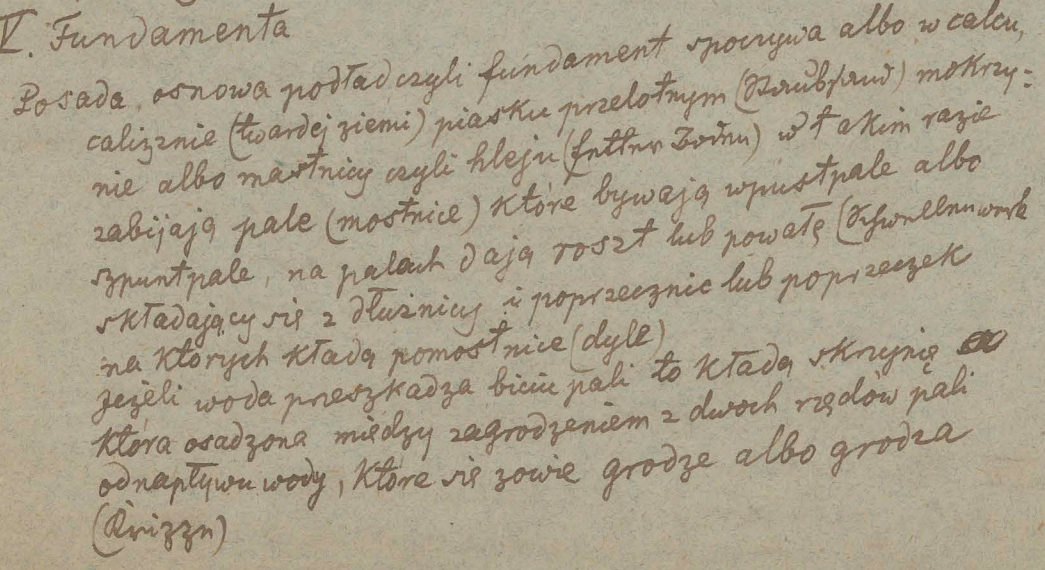 V. Fundamenta
Posada, osnowa podład czyli fundament spoczywa albo w calcu,
caliznie (twardej ziemi) piasku przelotnym (Staubsand) mokrzy-
nie albo mastnicy czyli kleju (fetter Boden) w takim razie
zabijają pale (mostnice) które bywają wpustpale albo
szpuntpale, na palach dają roszt lub powałę (Schwellenwerk
składający się z dłużnicy i poprzecznic lub poprzeczek
na których kładą pomostnice (dyle)
Jeżeli woda przeszkadza biciu pali to kładą skrzynię
która osadzona między zagrodzeniem z dwoch rzędów pali
od napływu wody, które się zowie grodze albo grodza